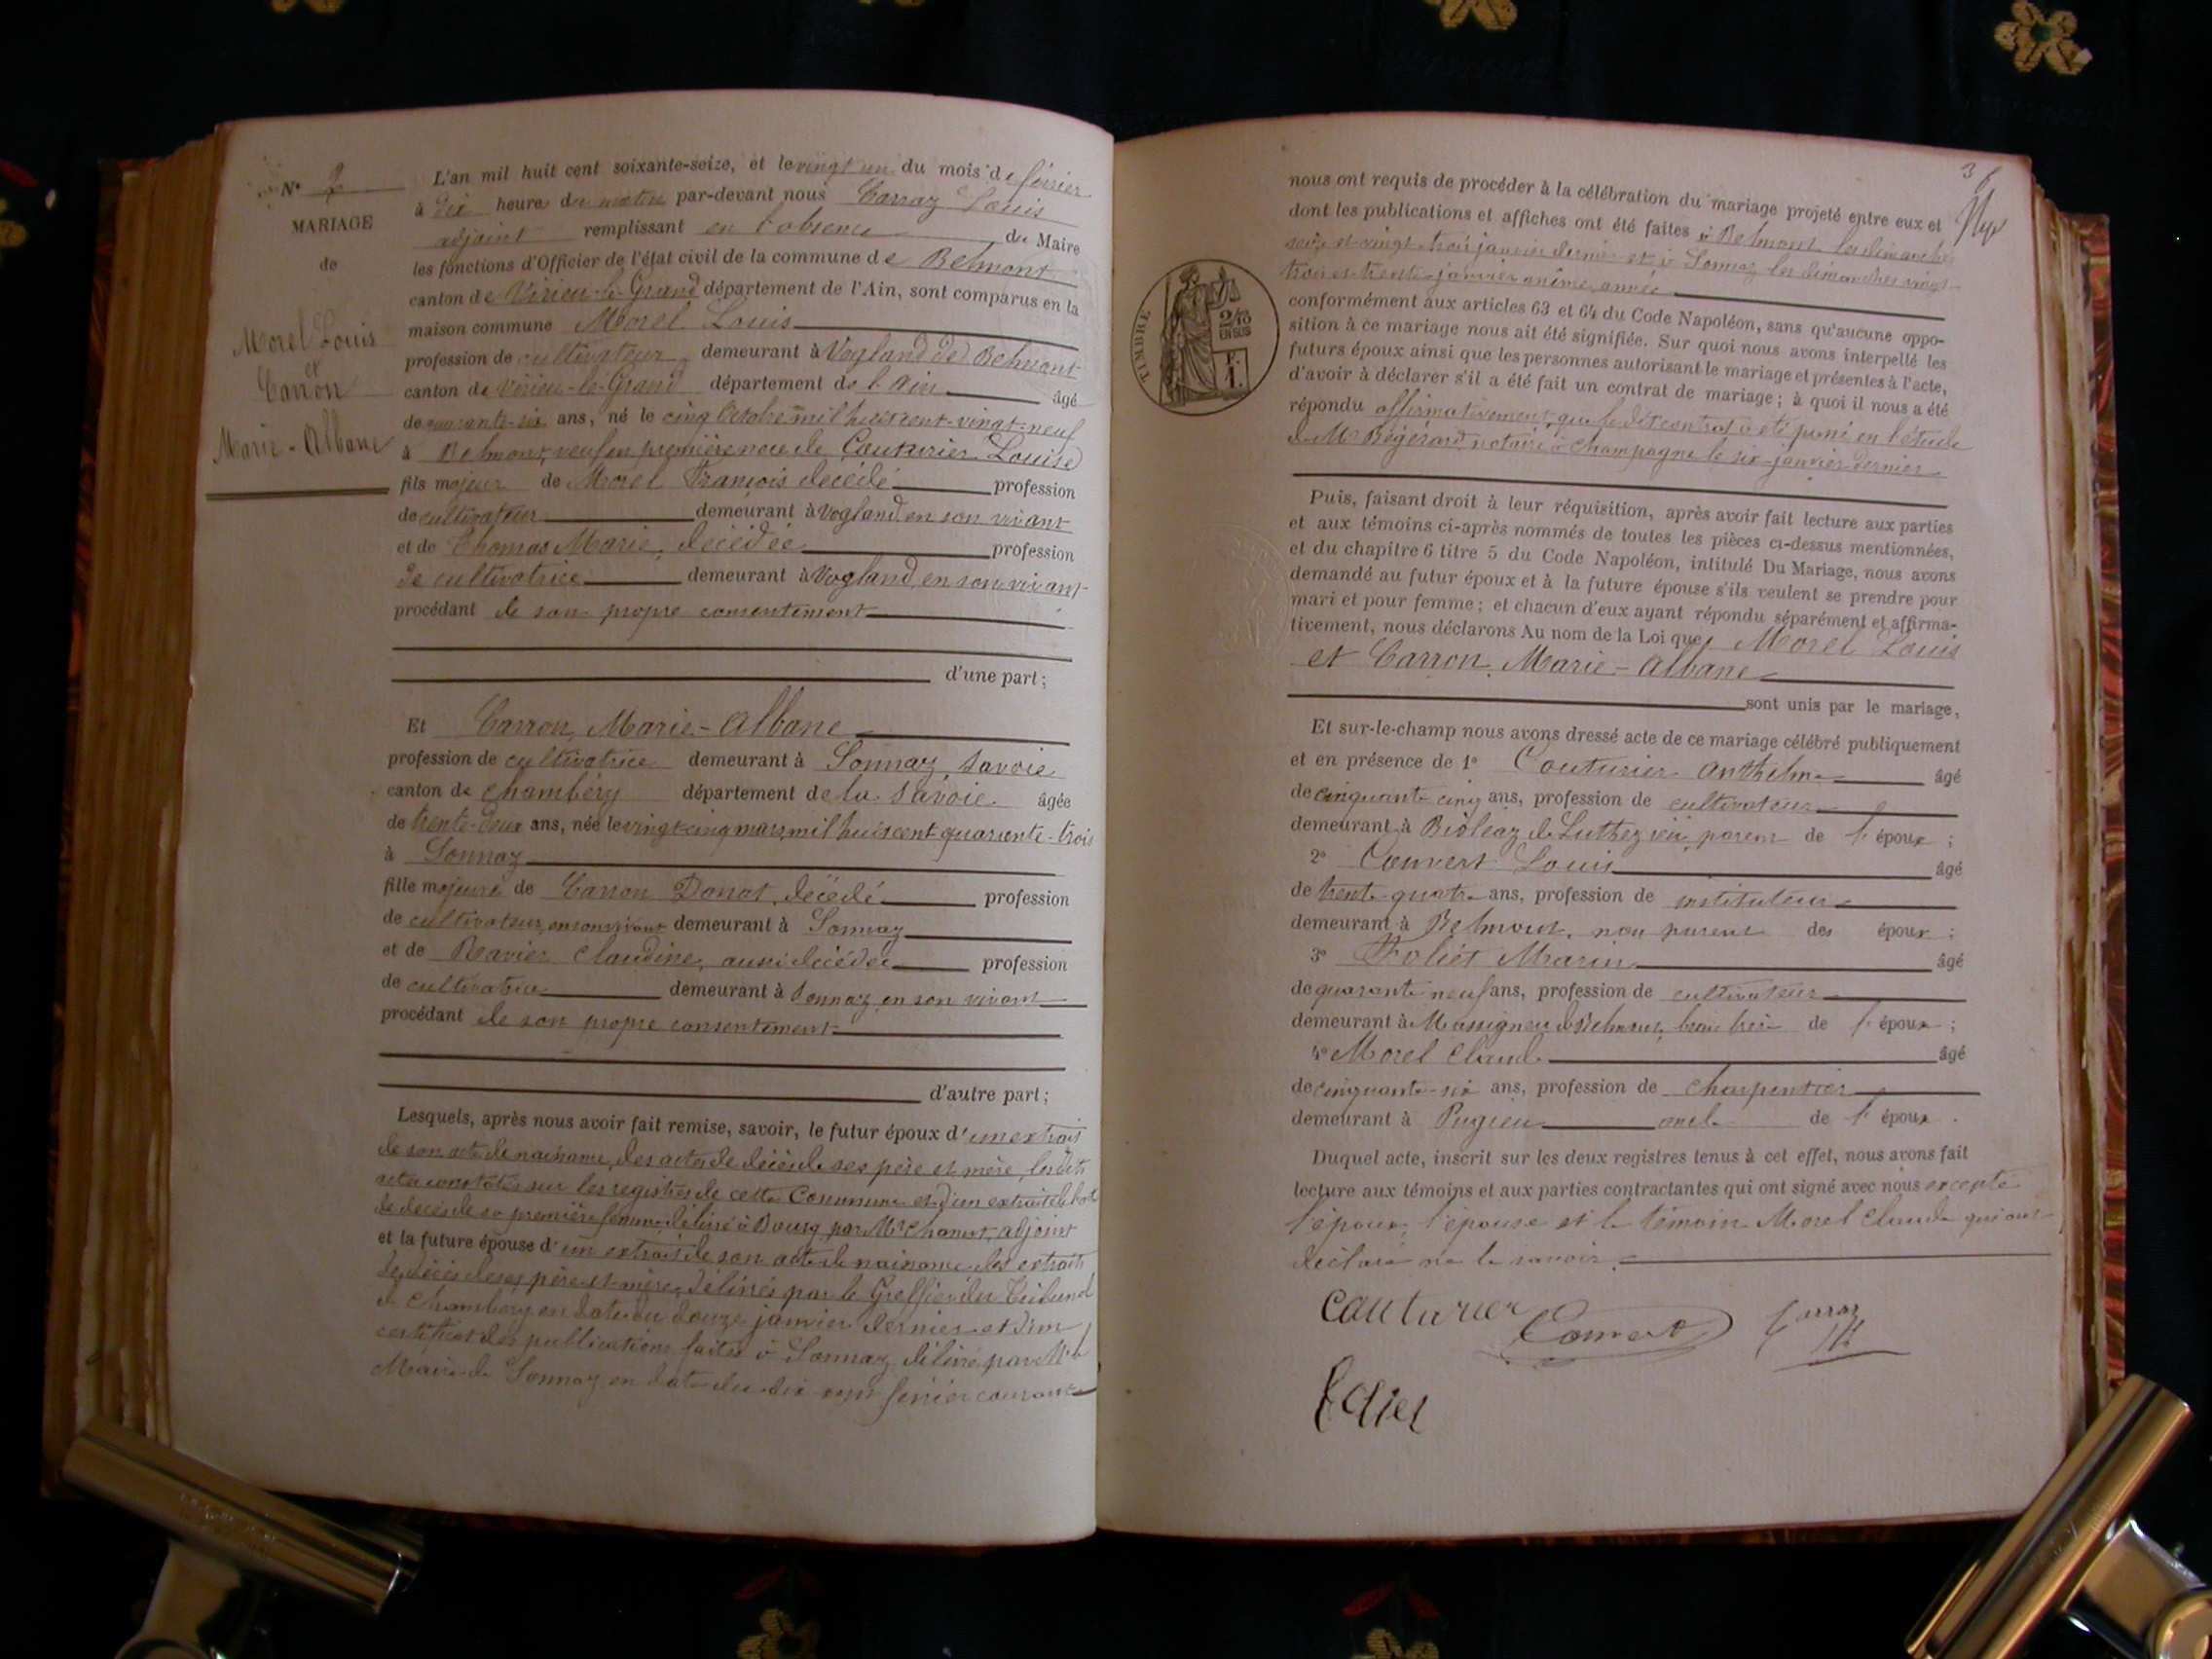 N° 2
MARIAGE
de
Morel Louis
et
Carron
Marie-Albane
L'an mil huit cent soixante-seize, et le vingt un du mois de février
à dix heure du matin par-devant nous Carraz Louis
adjoint remplissant en l'absence du Maire
les fonctions d'Officier de l'état civil de la commune de Belmont
canton de Virieu-le-Grand département de l'Ain, sont comparus en la
maison commune Morel Louis
profession de cultivateur demeurant à Vogland de Belmont
canton de Virieu-le-Grand département de l'Ain âgé
de quarante-six ans, né le cinq Octobre mil huit cent-vingt-neuf
à Belmont, veuf en première noce de Couturier Louise
fils majeur de Morel François décédé profession
de cultivateur demeurant à Vogland en son vivant
et de Thomas Marie, décédée profession
de cultivatrice demeurant à Vogland, en son vivant
procédant de son propre consentement
d'une part ;
Et Carron, Marie-Albane
profession de cultivatrice demeurant à Sonnaz, Savoie
canton de Chambéry département de la Savoie âgée
de trente-deux ans, née le vingt-cinq mars mil huit cent quarante-trois
à Sonnaz
fille majeure de Carron Donat, décédé profession
de cultivateur, en son vivant demeurant à Sonnaz
et de Claudine, aussi décédée profession
de cultivatrice demeurant à Sonnaz, en son vivant
procédant de son propre consentement
d'autre part ;
Lesquels, après nous avoir fait remise, savoir, le futur époux d'un extrait
de son acte de naissance, des actes de décès de ses père et mère, lesdits
actes constatés sur les registres de cette Commune et d'un extrait de l'acte
de décès de sa première femme, délivré à Bourg par Mr Chanut, adjoint
et la future épouse d'un extrait de son acte de naissance, des extraits
de décès de ses père et mère, délivrés par le Greffier du Tribunal
de Chambéry en date du douze janvier dernier et d'un
certificat des publications faites à Sonnaz, délivré par Mr le
Maire de Sonnaz, en date du dix février courant
36
nous ont requis de procéder à la célébration du mariage projeté entre eux et
dont les publications et affiches ont été faites à Belmont les dimanches
seize et vingt-trois janvier dernier et à Sonnaz les dimanches vingt-
trois et trente janvier même année
conformément aux articles 63 et 64 du Code Napoléon, sans qu'aucune oppo-
sition à ce mariage nous ait été signifiée. Sur quoi nous avons interpellé les
futurs époux ainsi que les personnes autorisant le mariage et présentes à l'acte,
d'avoir à déclarer s'il a été fait un contrat de mariage ; à quoi il nous a été
répondu affirmativement, que le dit contrat a été passé en l'étude
de Mr notaire à Champagne le six janvier dernier
TIMBRE
2/10
EN SUS
F.
1.
Puis, faisant droit à leur réquisition, après avoir fait lecture aux parties
et aux témoins ci-après nommés de toutes les pièces ci-dessus mentionnées,
et du chapitre 6 titre 5 du Code Napoléon, intitulé Du Mariage, nous avons
demandé au futur époux et à la future épouse s'ils veulent se prendre pour
mari et pour femme ; et chacun d'eux ayant répondu séparément et affirma-
tivement, nous déclarons Au nom de la Loi que, Morel Louis
et Carron, Marie-Albane
sont unis par le mariage,
Et sur-le-champ nous avons dressé acte de ce mariage célébré publiquement
et en présence de 1° Couturier Anthelme âgé
de cinquante cinq ans, profession de cultivateur
demeurant à de Luthézieu, parent de l'époux ;
2° Convert Louis âgé
de trente-quatre ans, profession de instituteur
demeurant à Belmont, non parent des époux ;
3° Foliet Marin âgé
de quarante neuf ans, profession de cultivateur
demeurant à Massignieu de Belmont, beau frère de l'époux ;
4° Morel Claude âgé
de cinquante-six ans, profession de charpentier
demeurant à Pugieu oncle de l'époux .
Duquel acte, inscrit sur les deux registres tenus à cet effet, nous avons fait
lecture aux témoins et aux parties contractantes qui ont signé avec nous excepté
l'époux, l'épouse et le témoin Morel Claude qui ont
déclaré ne le savoir.
Couturier Convert Carraz